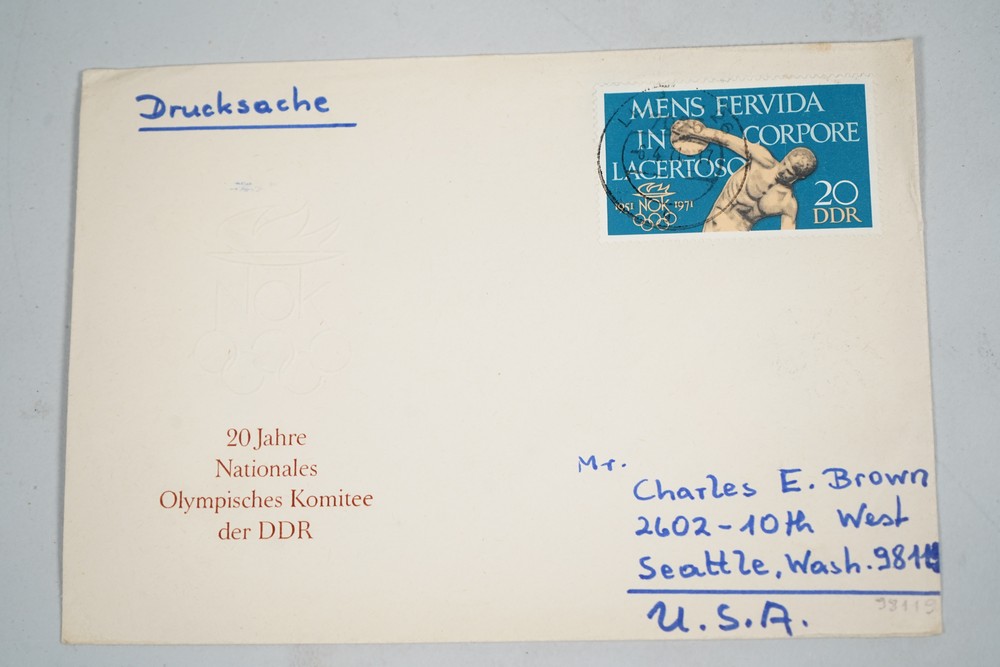 Drucksache
MENS FERVIDA
IN CORPORE
LACERTOSO
1951 NOK 1971
20
DDR
NOK
20 Jahre
Nationales
Olympisches Komitee
der DDR
Mr.
Charles E. Brown
2602-10th West
Seattle, Wash.
U.S.A.
98119